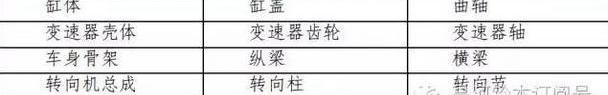 缸体 缸盖 曲轴
变速器壳体 变速器齿轮 变速器轴
车身骨架 纵梁 横梁
转向机总成 转向柱 转向节